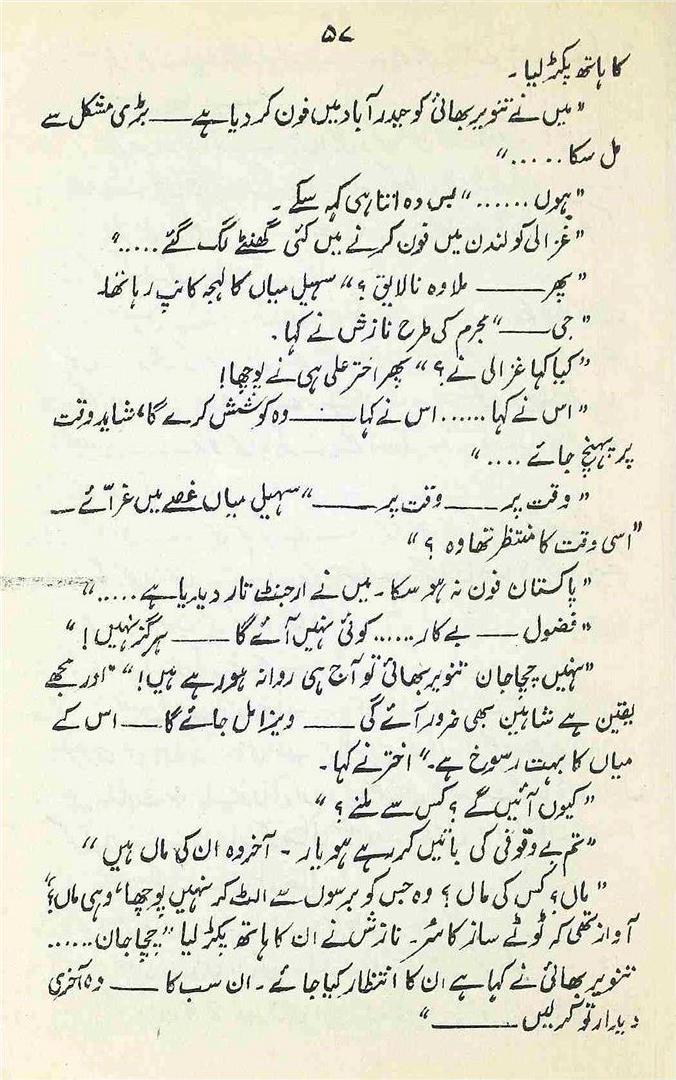 ۵۷
کا ہاتھ پکڑ لیا۔
”میں نے تنویر بھائی کو حیدر آباد میں فون کر دیا ہے ـــــ بڑی مشکل سے
مل سکا ……“
”ہوں ……“ بس وہ اتنا ہی کہہ سکے۔
”غزالی کو لندن میں فون کرنے میں کئی گھنٹے لگ گئے ……“
”پھر ـــــ ملا وہ نالایق؟“ سہیل میاں کا لہجہ کانپ رہا تھا۔
”جی ـــــ“ مجرم کی طرح نازش نے کہا۔
”کیا کہا غزالی نے؟“ پھر اختر علی ہی نے پوچھا!
”اس نے کہا …… اس نے کہا ـــــ وہ کوشش کرے گا، شاید وقت
پر پہنچ جائے ……“
”وقت پر ـــــ وقت پر ـــــ“ سہیل میاں غصے میں غرّائے ـــ
”اسی وقت کا منتظر تھا وہ؟“
”پاکستان فون نہ ہو سکا۔ میں نے ارجنٹ تار دیدیا ہے ……“
”فضول ـــــ بے کار …… کوئی نہیں آئے گا ـــــ ہرگز نہیں!“
”نہیں چچا جان تنویر بھائی تو آج ہی روانہ ہو رہے ہیں!“ ”اور مجھے
یقین ہے شاہین بھی ضرور آئے گی ـــــ ویزا مل جائے گا ـــــ اس کے
میاں کا بہت رسوخ ہے۔“ اختر نے کہا۔
”کیوں آئیں گے؟ کس سے ملنے؟“
”تم بے وقوفی کی باتیں کر رہے ہو یار۔ آخر وہ ان کی ماں ہیں“
”ماں؟ کس کی ماں؟ وہ جس کو برسوں سے الٹ کر نہیں پوچھا، وہی ماں؟“
آواز تھی کہ ٹوٹے ساز کا سُر۔ نازش نے ان کا ہاتھ پکڑ لیا ”چچا جان ……
تنویر بھائی نے کہا ہے ان کا انتظار کیا جائے۔ ان سب کا ـــــ وہ آخری
دیدار تو کر لیں ـــــ“